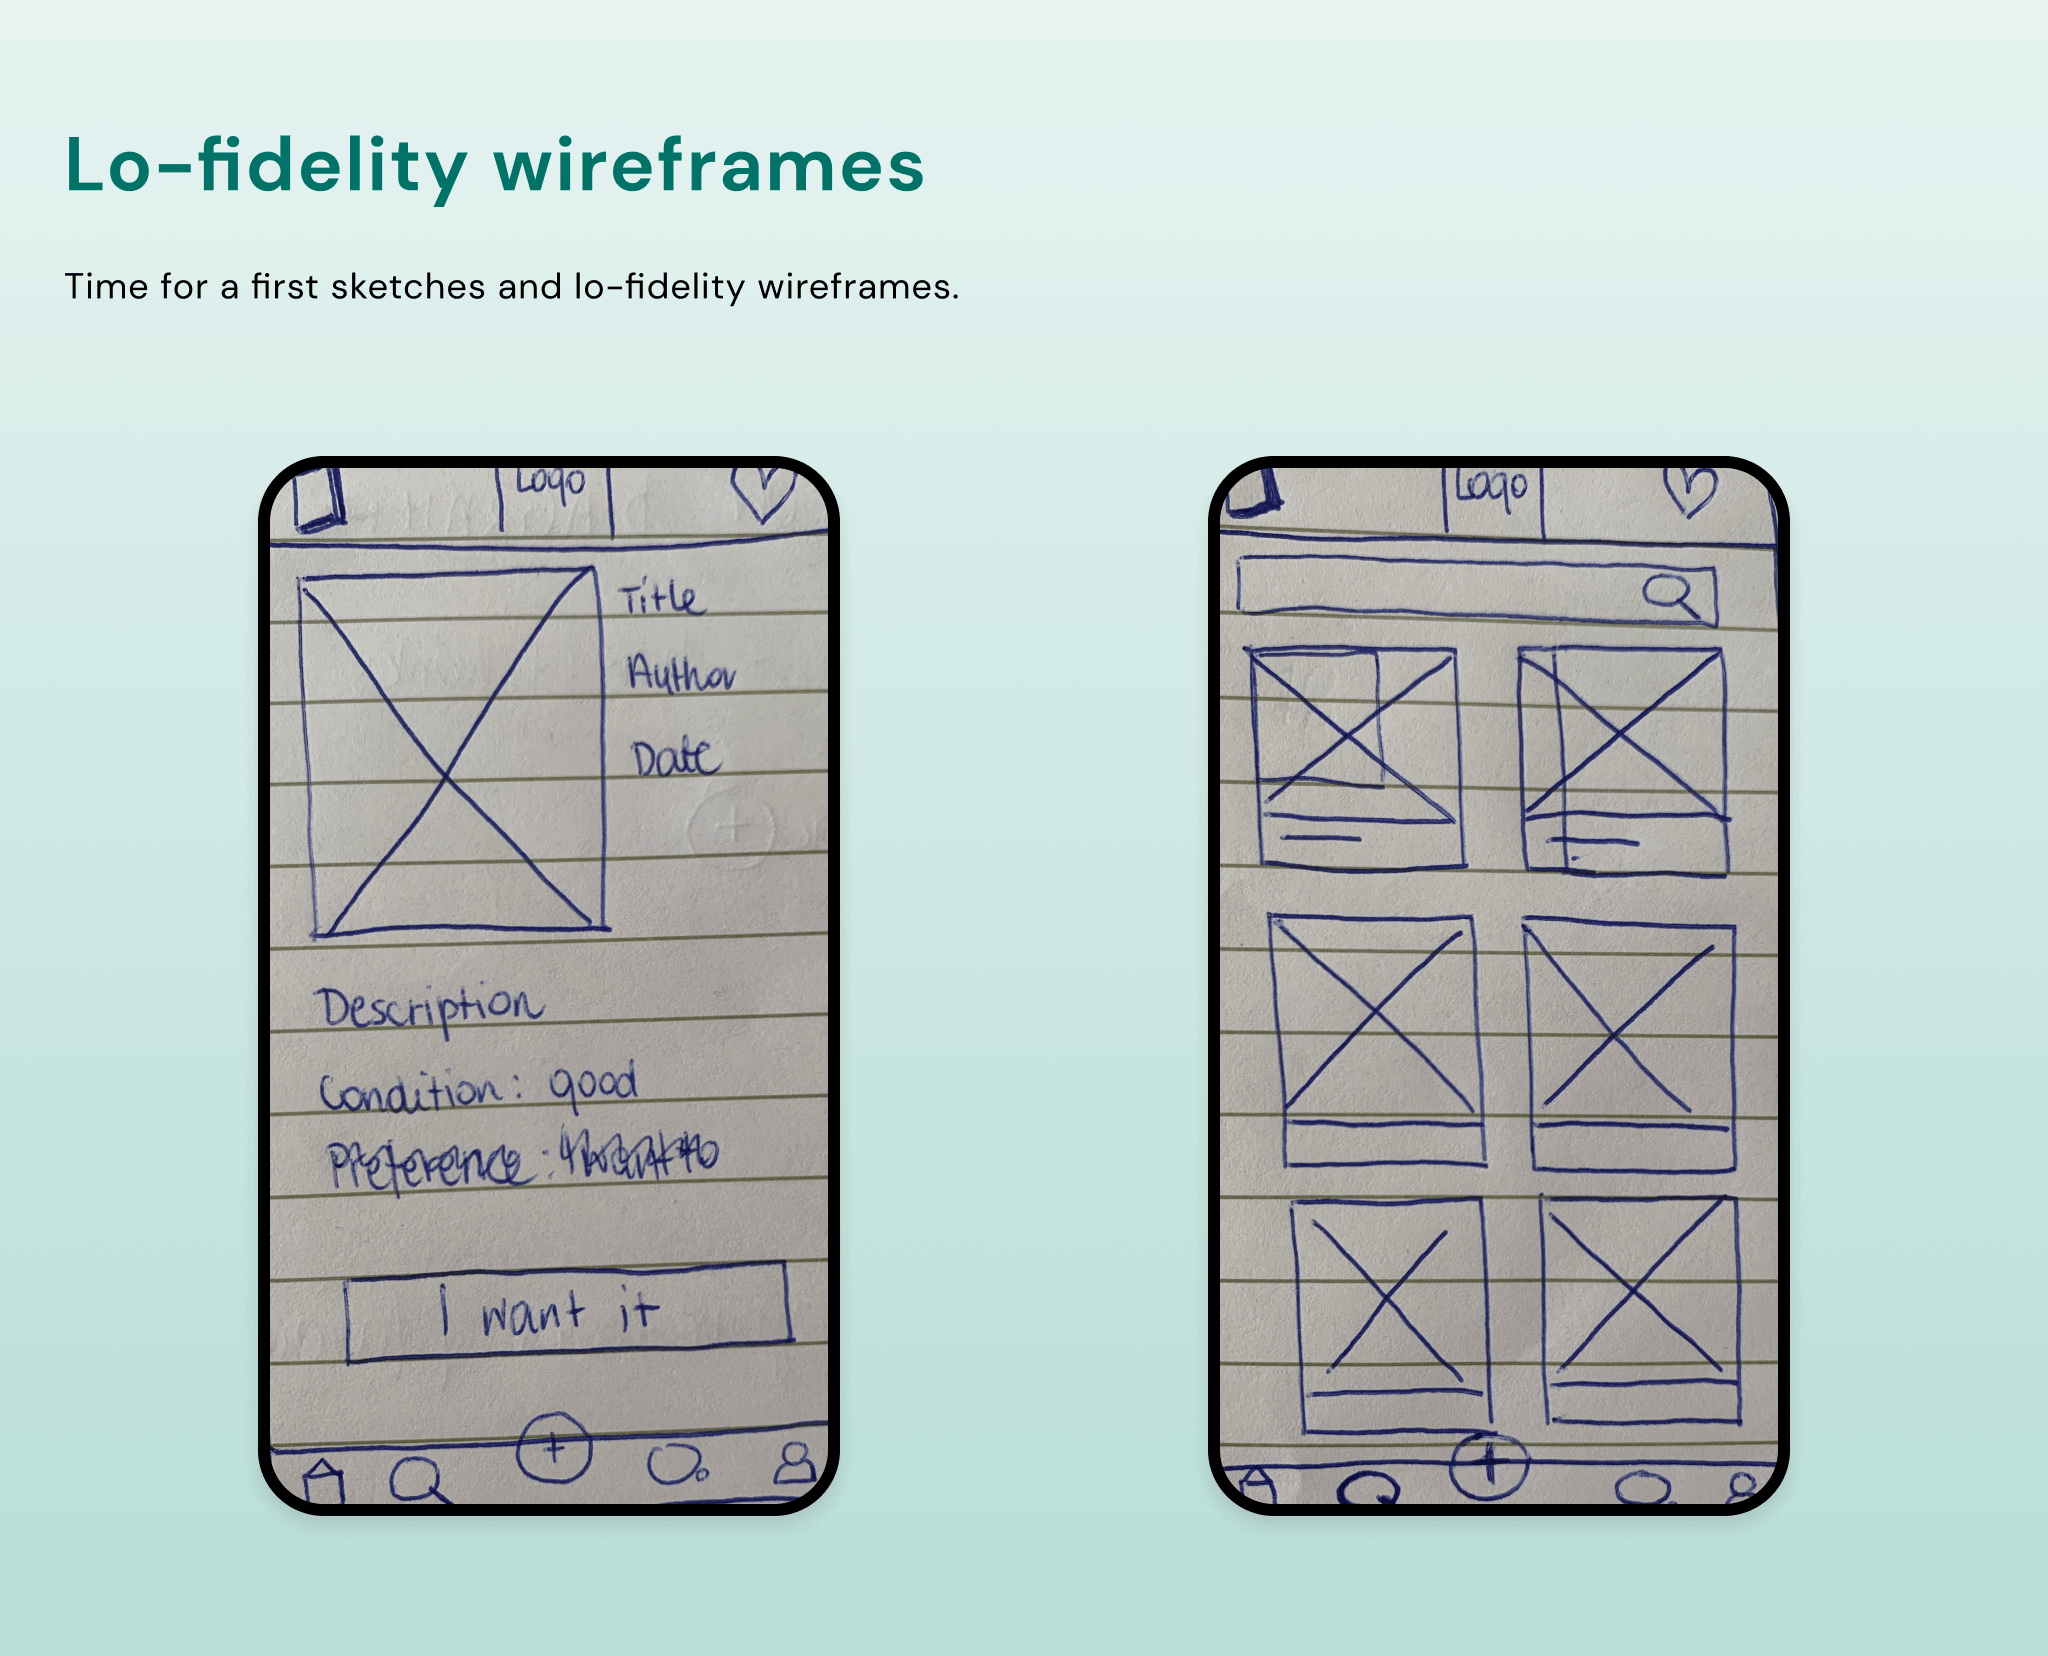 Lo-fidelity wireframes
Time for a first sketches and lo-fidelity wireframes.
Logo
Title
Author
Date
Description
Condition: good
Preference:
I want it
Logo